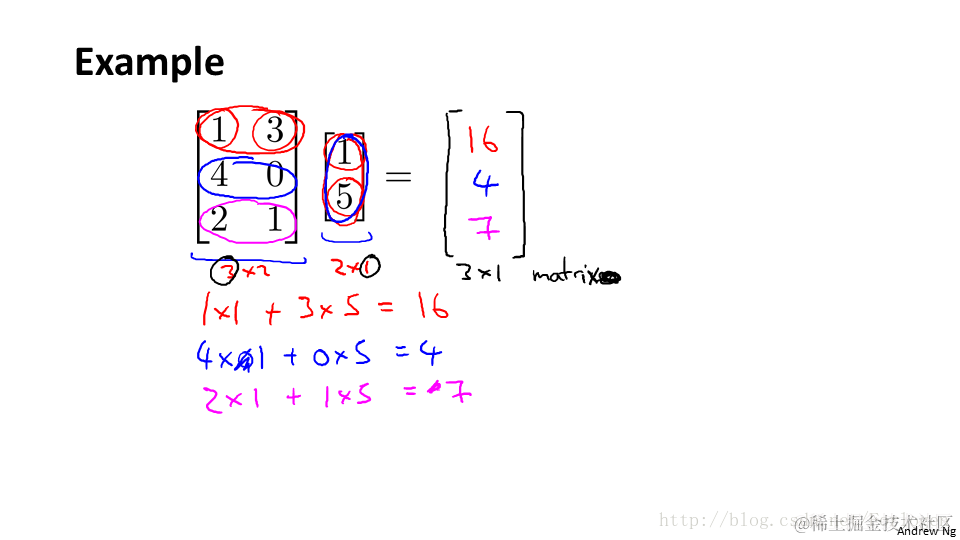 Example
1 3
4 0
2 1
1
5
=
16
4
7
3×2
2×1
3×1 matrix
1×1 + 3×5 = 16
4×1 + 0×5 = 4
2×1 + 1×5 = 7
@稀土掘金技术社区
Andrew Ng